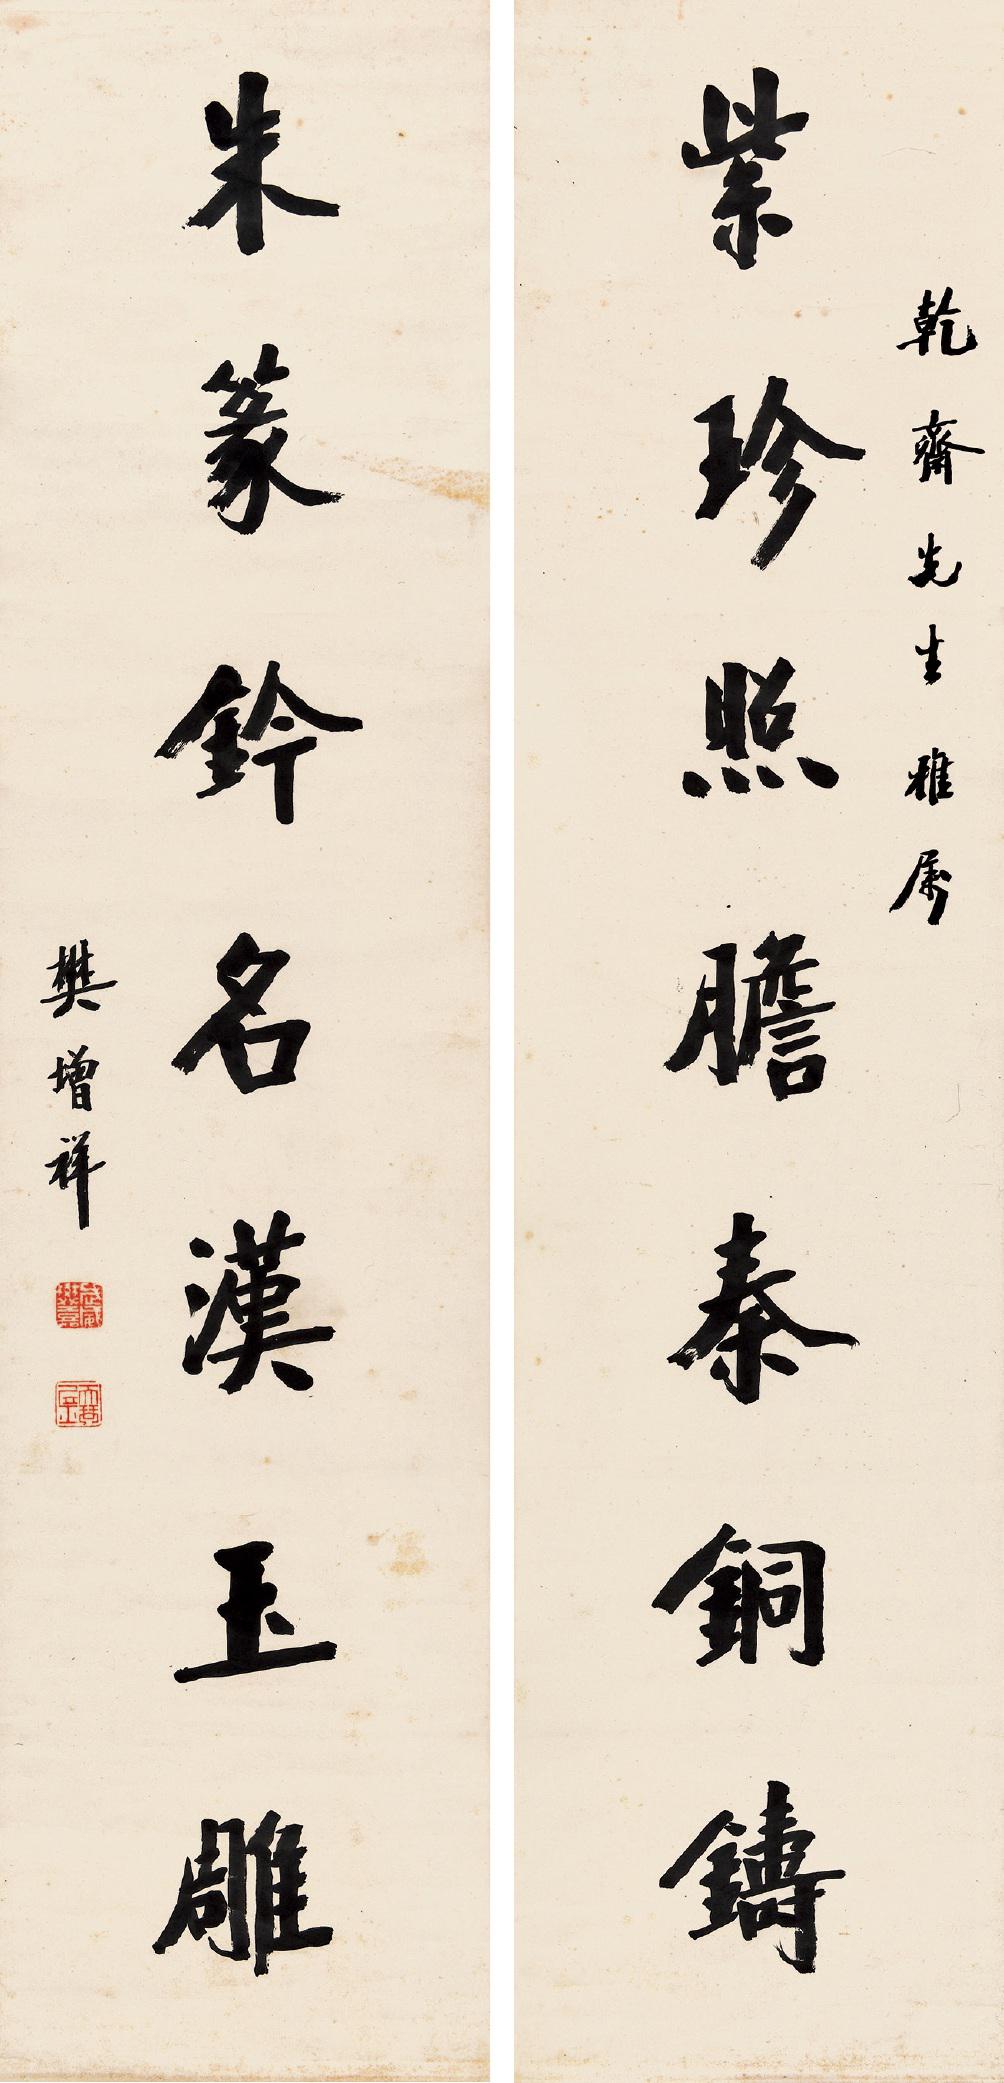 乾齋先生雅属
紫珍照膽秦銅鑄
朱篆鈐名漢玉雕
樊增祥